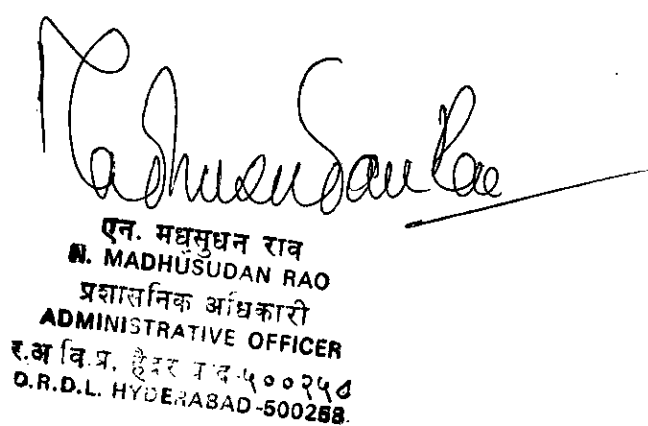 Madhusudan Rao
एन. मधुसुधन राव
N. MADHUSUDAN RAO
प्रशासनिक अधिकारी
ADMINISTRATIVE OFFICER
र.अ वि.प्र. हैदराबाद-५००२५८
D.R.D.L. HYDERABAD-500258.